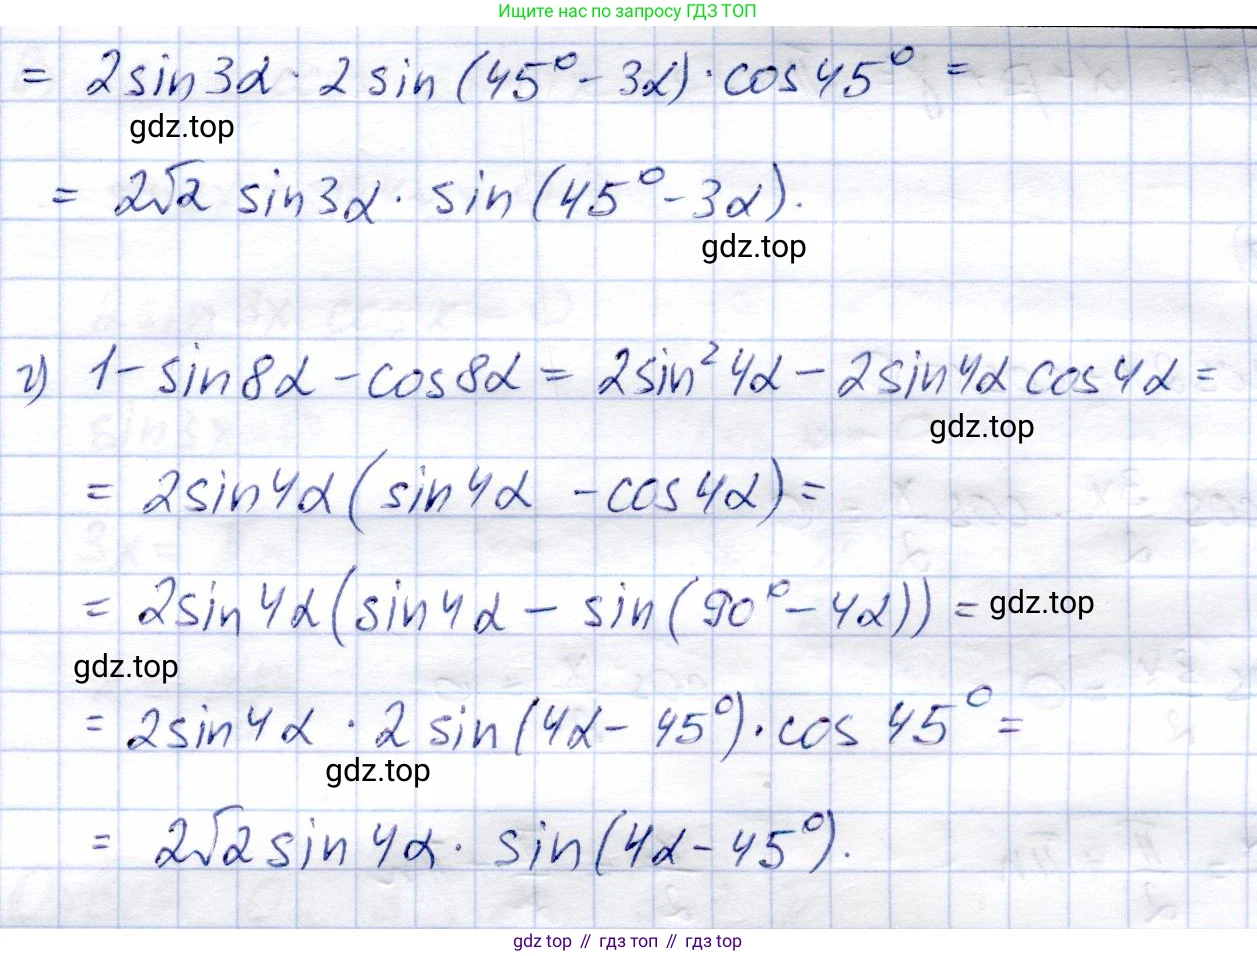 Ищите нас по запросу ГДЗ ТОП
= 2sin3α · 2 sin(45° - 3α) · cos45° =
gdz.top
= 2√2 sin3α · sin(45° - 3α).
gdz.top
г) 1 - sin8α - cos8α = 2sin²4α - 2sin4α cos4α =
gdz.top
= 2sin4α(sin4α - cos4α) =
= 2sin4α(sin4α - sin(90° - 4α)) = gdz.top
gdz.top
= 2sin4α · 2 sin(4α - 45°) · cos 45° =
gdz.top
= 2√2 sin4α · sin(4α - 45°).
gdz top // гдз топ // gdz top